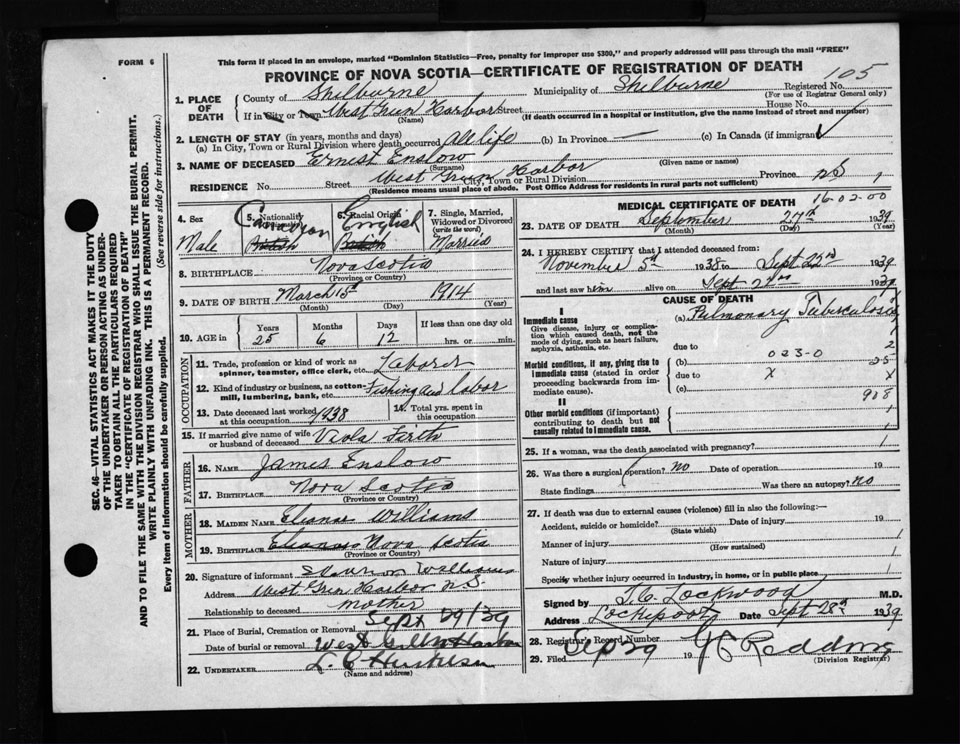 FORM 6
This form if placed in an envelope, marked "Dominion Statistics—Free, penalty for improper use $300," and properly addressed will pass through the mail "FREE"
PROVINCE OF NOVA SCOTIA—CERTIFICATE OF REGISTRATION OF DEATH
105
1. PLACE OF DEATH
County of Shelburne Municipality of Shelburne Registered No.
(For use of Registrar General only)
If in City or Town West Green Harbor Street House No.
(Name) (If death occurred in a hospital or institution, give the name instead of street and number)
2. LENGTH OF STAY (in years, months and days)
(a) In City, Town or Rural Division where death occurred All life (b) In Province — (c) In Canada (if immigrant)
3. NAME OF DECEASED Ernest Enslow
(Surname) (Given name or names)
RESIDENCE No. Street West Green Harbor Province N.S. 1
City, Town or Rural Division
(Residence means usual place of abode. Post Office Address for residents in rural parts not sufficient)
4. Sex Male
5. Nationality Canadian British
6. Racial Origin English British
7. Single, Married, Widowed or Divorced (write the word) Married
8. BIRTHPLACE Nova Scotia
(Province or Country)
9. DATE OF BIRTH March 15th 1914
(Month) (Day) (Year)
10. AGE in Years Months Days If less than one day old
25 6 12 hrs. or min.
OCCUPATION
11. Trade, profession or kind of work as spinner, teamster, office clerk, etc. Laborer
12. Kind of industry or business, as cotton-mill, lumbering, bank, etc. Fishing and labor
13. Date deceased last worked at this occupation 1938
14. Total yrs. spent in this occupation
15. If married give name of wife or husband of deceased Viola Firth
FATHER
16. NAME James Enslow
17. BIRTHPLACE Nova Scotia
(Province or Country)
MOTHER
18. MAIDEN NAME Eleanor Williams
19. BIRTHPLACE Nova Scotia
(Province or Country)
20. Signature of informant Williams
Address West Green Harbor N.S.
Relationship to deceased mother
21. Place of Burial, Cremation or Removal Sept 29/39
Date of burial or removal West Green Harbor
22. UNDERTAKER L. C.
(Name and address)
MEDICAL CERTIFICATE OF DEATH
16-02-00
23. DATE OF DEATH September 27th 1939
(Month) (Day) (Year)
24. I HEREBY CERTIFY that I attended deceased from:
November 5th 1938 to Sept 22nd 1939
and last saw him alive on Sept 22nd 1939
CAUSE OF DEATH
I
Immediate cause
Give disease, injury or complication which caused death, not the mode of dying, such as heart failure, asphyxia, asthenia, etc.
(a) Pulmonary Tuberculosis
1
due to 2
Morbid conditions, if any, giving rise to immediate cause (stated in order proceeding backwards from immediate cause).
(b) 023-0 25
due to X X
(c) 908
II
Other morbid conditions (if important) contributing to death but not causally related to immediate cause.
1
25. If a woman, was the death associated with pregnancy? 1
26. Was there a surgical operation? no Date of operation 19
State findings Was there an autopsy? no
27. If death was due to external causes (violence) fill in also the following:—
Accident, suicide or homicide? Date of injury 19
(State which)
Manner of injury 1
(How sustained)
Nature of injury 1
Specify whether injury occurred in industry, in home, or in public place 1
Signed by T.C. Lockwood M.D.
Address Lockeport Date Sept 28th 1939
28. Registrar's Record Number
29. Filed Sep 29 19
(Division Registrar)
SEC. 46—VITAL STATISTICS ACT MAKES IT THE DUTY OF THE UNDERTAKER OR PERSON ACTING AS UNDERTAKER TO OBTAIN ALL THE PARTICULARS REQUIRED IN THE "CERTIFICATE OF REGISTRATION OF DEATH" AND TO FILE THE SAME WITH THE DIVISION REGISTRAR WHO SHALL ISSUE THE BURIAL PERMIT.
WRITE PLAINLY WITH UNFADING INK. THIS IS A PERMANENT RECORD.
Every item of information should be carefully supplied. (See reverse side for instructions.)